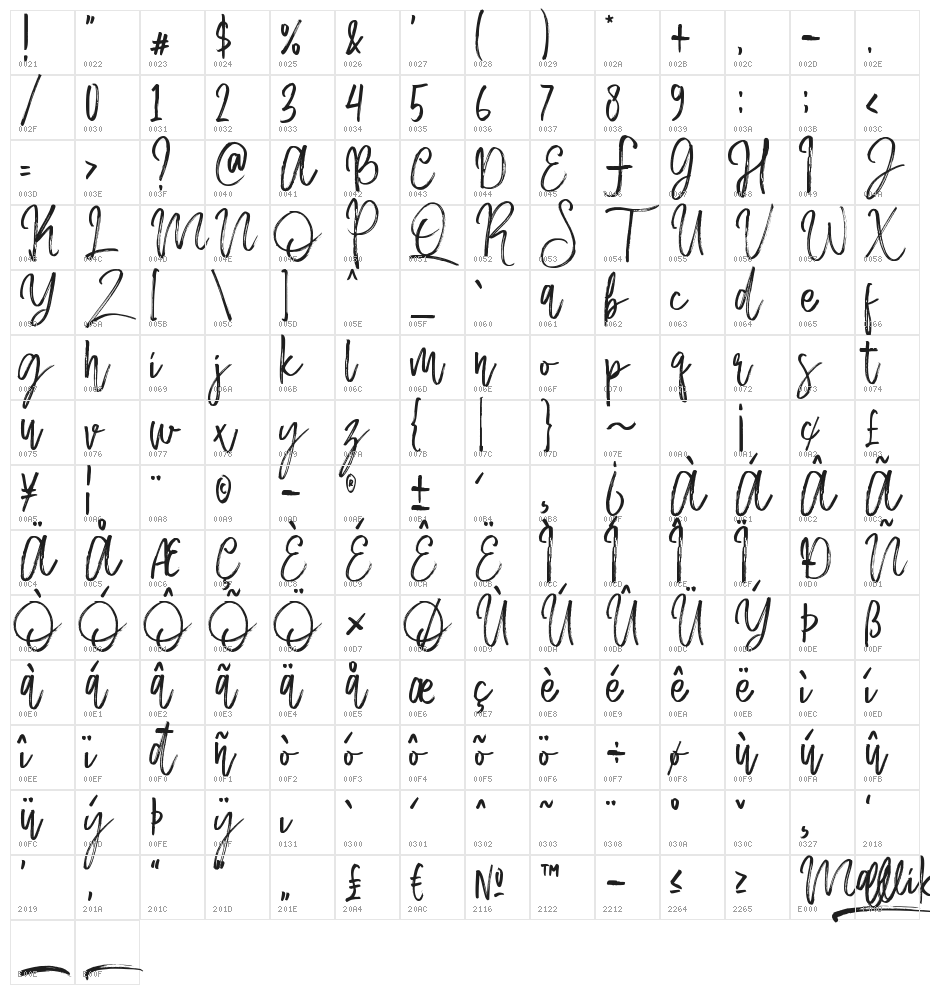 ! " # $ % & ' ( ) * + , - .
0021 0022 0023 0024 0025 0026 0027 0028 0029 002A 002B 002C 002D 002E
/ 0 1 2 3 4 5 6 7 8 9 : ; <
002F 0030 0031 0032 0033 0034 0035 0036 0037 0038 0039 003A 003B 003C
= > ? @ A B C D E F G H I J
003D 003E 003F 0040 0041 0042 0043 0044 0045 0046 0047 0048 0049 004A
K L M N O P Q R S T U V W X
004B 004C 004D 004E 004F 0050 0051 0052 0053 0054 0055 0056 0057 0058
Y Z [ \ ] ^ _ ` a b c d e f
0059 005A 005B 005C 005D 005E 005F 0060 0061 0062 0063 0064 0065 0066
g h i j k l m n o p q r s t
0067 0068 0069 006A 006B 006C 006D 006E 006F 0070 0071 0072 0073 0074
u v w x y z { | } ~ ¡ ¢ £
0075 0076 0077 0078 0079 007A 007B 007C 007D 007E 00A0 00A1 00A2 00A3
¥ ¦ ¨ © - ® ± ´ ¸ ¿ À Á Â Ã
00A5 00A6 00A8 00A9 00AD 00AE 00B1 00B4 00B8 00BF 00C0 00C1 00C2 00C3
Ä Å Æ Ç È É Ê Ë Ì Í Î Ï Ð Ñ
00C4 00C5 00C6 00C7 00C8 00C9 00CA 00CB 00CC 00CD 00CE 00CF 00D0 00D1
Ò Ó Ô Õ Ö × Ø Ù Ú Û Ü Ý Þ ß
00D2 00D3 00D4 00D5 00D6 00D7 00D8 00D9 00DA 00DB 00DC 00DD 00DE 00DF
à á â ã ä å æ ç è é ê ë ì í
00E0 00E1 00E2 00E3 00E4 00E5 00E6 00E7 00E8 00E9 00EA 00EB 00EC 00ED
î ï ð ñ ò ó ô õ ö ÷ ø ù ú û
00EE 00EF 00F0 00F1 00F2 00F3 00F4 00F5 00F6 00F7 00F8 00F9 00FA 00FB
ü ý þ ÿ ı ̀ ́ ̂ ̃ ̈ ̊ ̌ ̧ ‘
00FC 00FD 00FE 00FF 0131 0300 0301 0302 0303 0308 030A 030C 0327 2018
’ ‚ “ ” „ ₤ € № ™ − ≤ ≥
2019 201A 201C 201D 201E 20A4 20AC 2116 2122 2212 2264 2265 E000